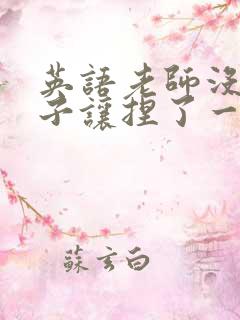 英語老師沒
子讓捏了一
蘇玄白